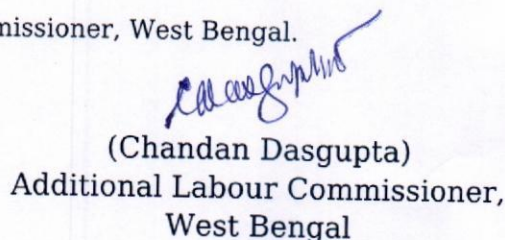 missioner, West Bengal.
(Chandan Dasgupta)
Additional Labour Commissioner,
West Bengal